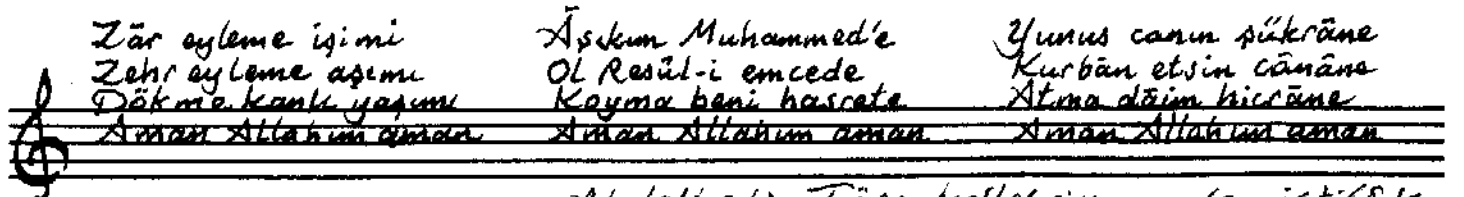 Zâr eyleme işimi
Zehr eyleme aşımı
Dökme kanlı yaşımı
Aman Allahım aman
Âşıkım Muhammed'e
Ol Resûl-i emcede
Koyma beni hasrete
Aman Allahım aman
Yunus canın şükrâne
Kurbân etsin cânâne
Atma dâim hicrâne
Aman Allahım aman